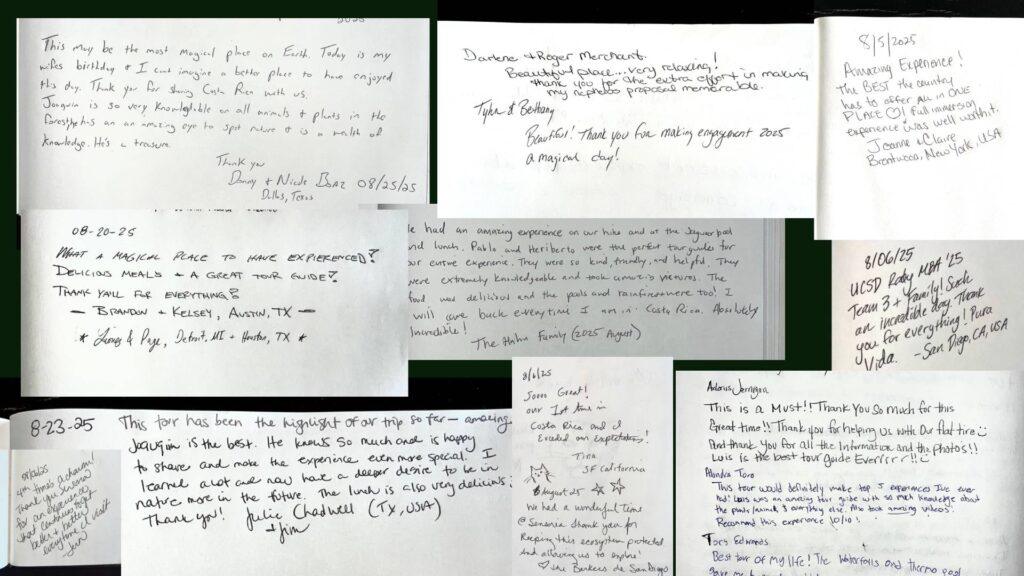 2025
This may be the most magical place on Earth. Today is my
wifes birthday & I cant imagine a better place to have enjoyed
this day. Thank you for sharing Costa Rica with us.
Joaquin is so very knowledgible on all animals & plants in the
forest has an an amazing eye to spot nature & is a wealth of
knowledge. He's a treasure.
Thank you
Danny & Nicole 08/25/25
Dallas, Texas
Darlene & Roger Merchant.
Beautiful place...very relaxing!
thank you for the extra effort in making
my nephews proposal memorable.
Tyler & Bethany
Beautiful! Thank you for making engagement 2025
a magical day!
8/5/2025
Amazing Experience!
The BEST the country
has to offer all in ONE
PLACE! full immersion
experience was well worth it.
Joanne & Claire
Brentwood, New York, USA
08-20-25
WHAT A MAGICAL PLACE TO HAVE EXPERIENCED!
DELICIOUS MEALS + A GREAT TOUR GUIDE!
THANK YA'LL FOR EVERYTHING!
— BRANDON + KELSEY, AUSTIN, TX —
* & Page, Detroit, MI + Houston, TX *
had an amazing experience on our hike and at the
lunch. Pablo and Heriberto were the perfect tour guides for
our entire experience. They were so kind, friendly, and helpful. They
were extremely knowledgeable and took amazing pictures. The
food was delicious and the pools and rainforest were too! I
will come back everytime I am in Costa Rica. Absolutely
incredible!
The Hahn Family (2025 August)
8/06/25
UCSD Rady MBA '25
Team 3 + Family! Such
an incredible day. Thank
you for everything! Pura
Vida. - San Diego, CA, USA
8-23-25
This tour has been the highlight of our trip so far — amazing.
Joaquin is the best. He knows so much and is happy
to share and make the experience even more special. I
learned a lot and now have a deeper desire to be in
nature more in the future. The lunch is also very delicious.
Thank you! Julie Chadwell (TX, USA)
& Jim
4th time's a charm!
Thank you Sensoria
for an experience
that continues to get
better & better
everytime I visit
8/6/25
Sooo Great!
our 1st time in
Costa Rica and it
Exceeded our expectations!
Tina
SF California
August 25
We had a wonderful time
@ Sensoria thank you for
Keeping this ecosystem protected
And allowing us to explore!
the Barkers de San Diego
Jernigan
This is a Must!! Thank you so much for this
Great time!! Thank you for helping us with our flat tire
And thank you for all the Information and the photos!!
Luis is the best tour guide Everrrr!!
Toro
This tour would definitely make top 5 experiences I've ever
had! Luis was an amazing tour guide with so much knowledge about
the plants/animals & everything else. Also took amazing videos!
Recommend this experience 10/10!
Tori Edmonds
Best tour of my life! The waterfalls and thermo pool